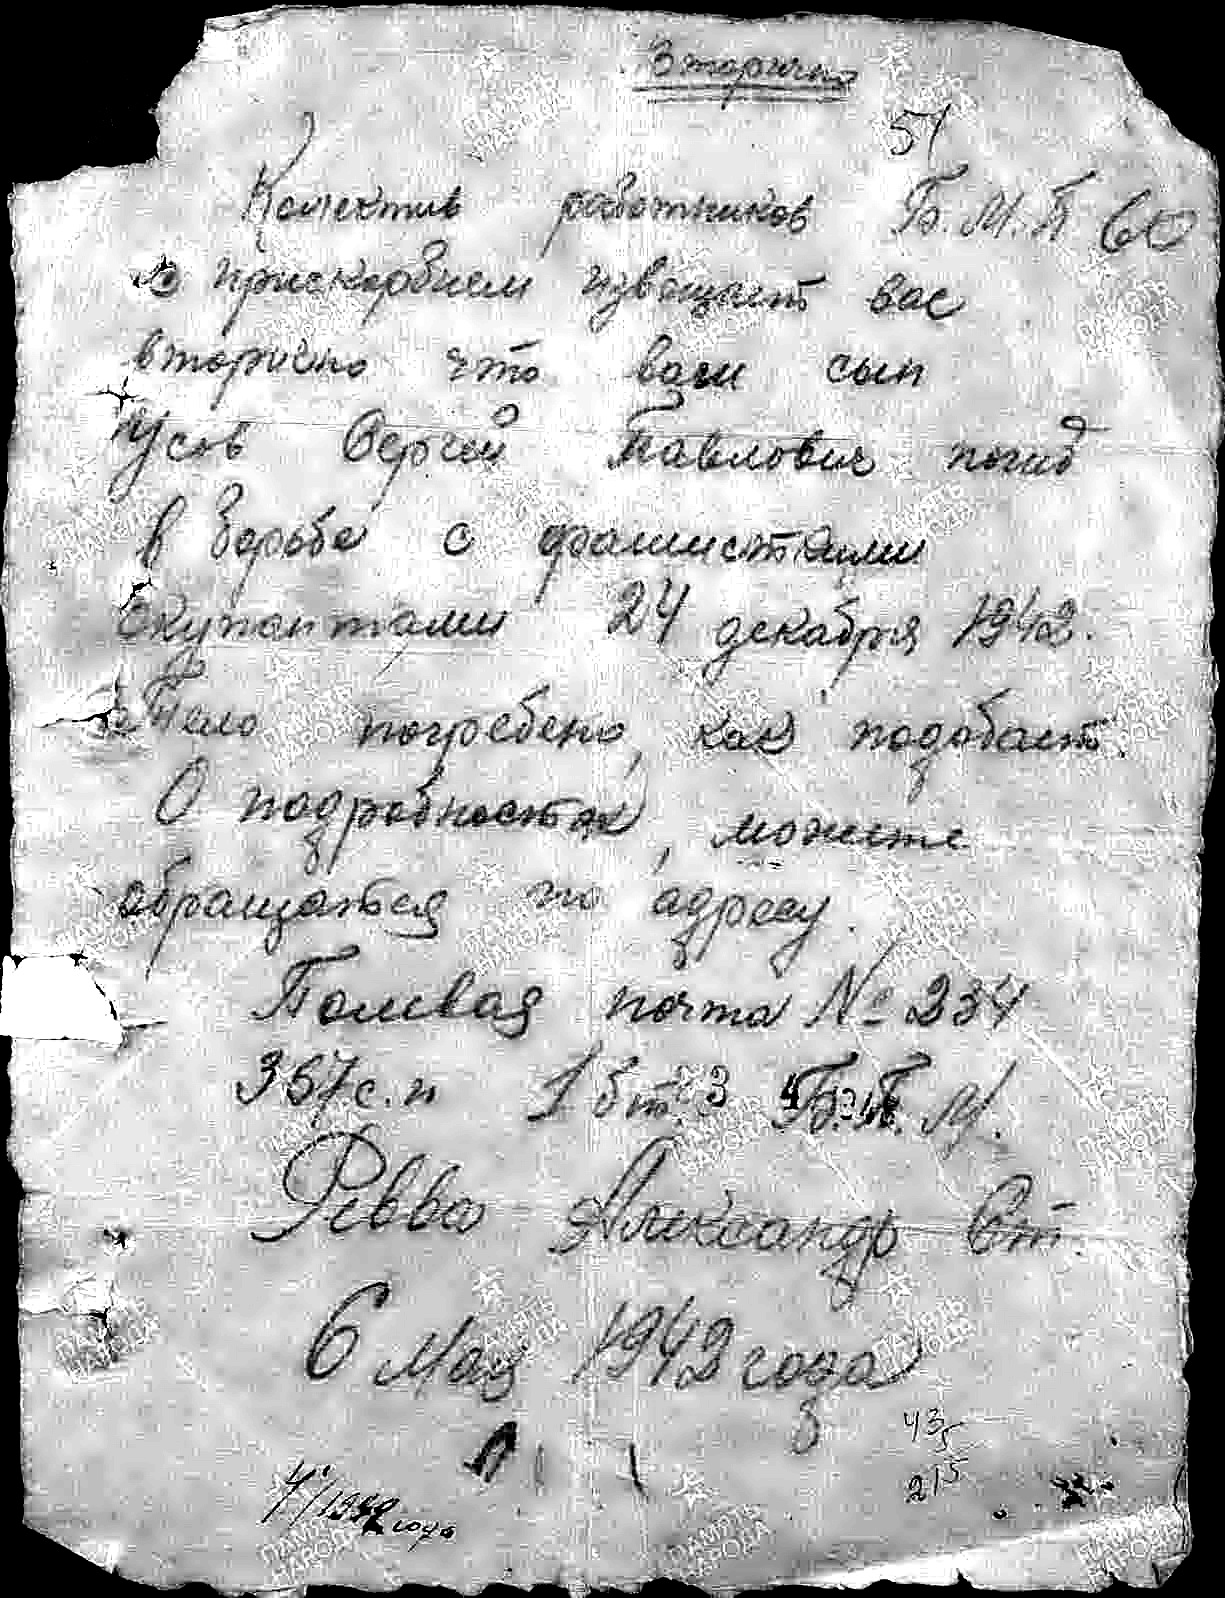 Вторично
51
Колектив работников Б.М.П 60
с прискорбием извещает вас
вторично что ваш сын
Усов Сергей Павлович погиб
в борьбе с фашисткими
окупантами 24 декабря 1942.
Тело погребено, как подобает.
О подробностях, можете
обращаться по адресу.
Полевая почта № 234
357 с.п 1 бт. Б.П.М.
Ревво Александр Ст.
6 мая 1942 года
43/5
215
1942 года
ПАМЯТЬ НАРОДА